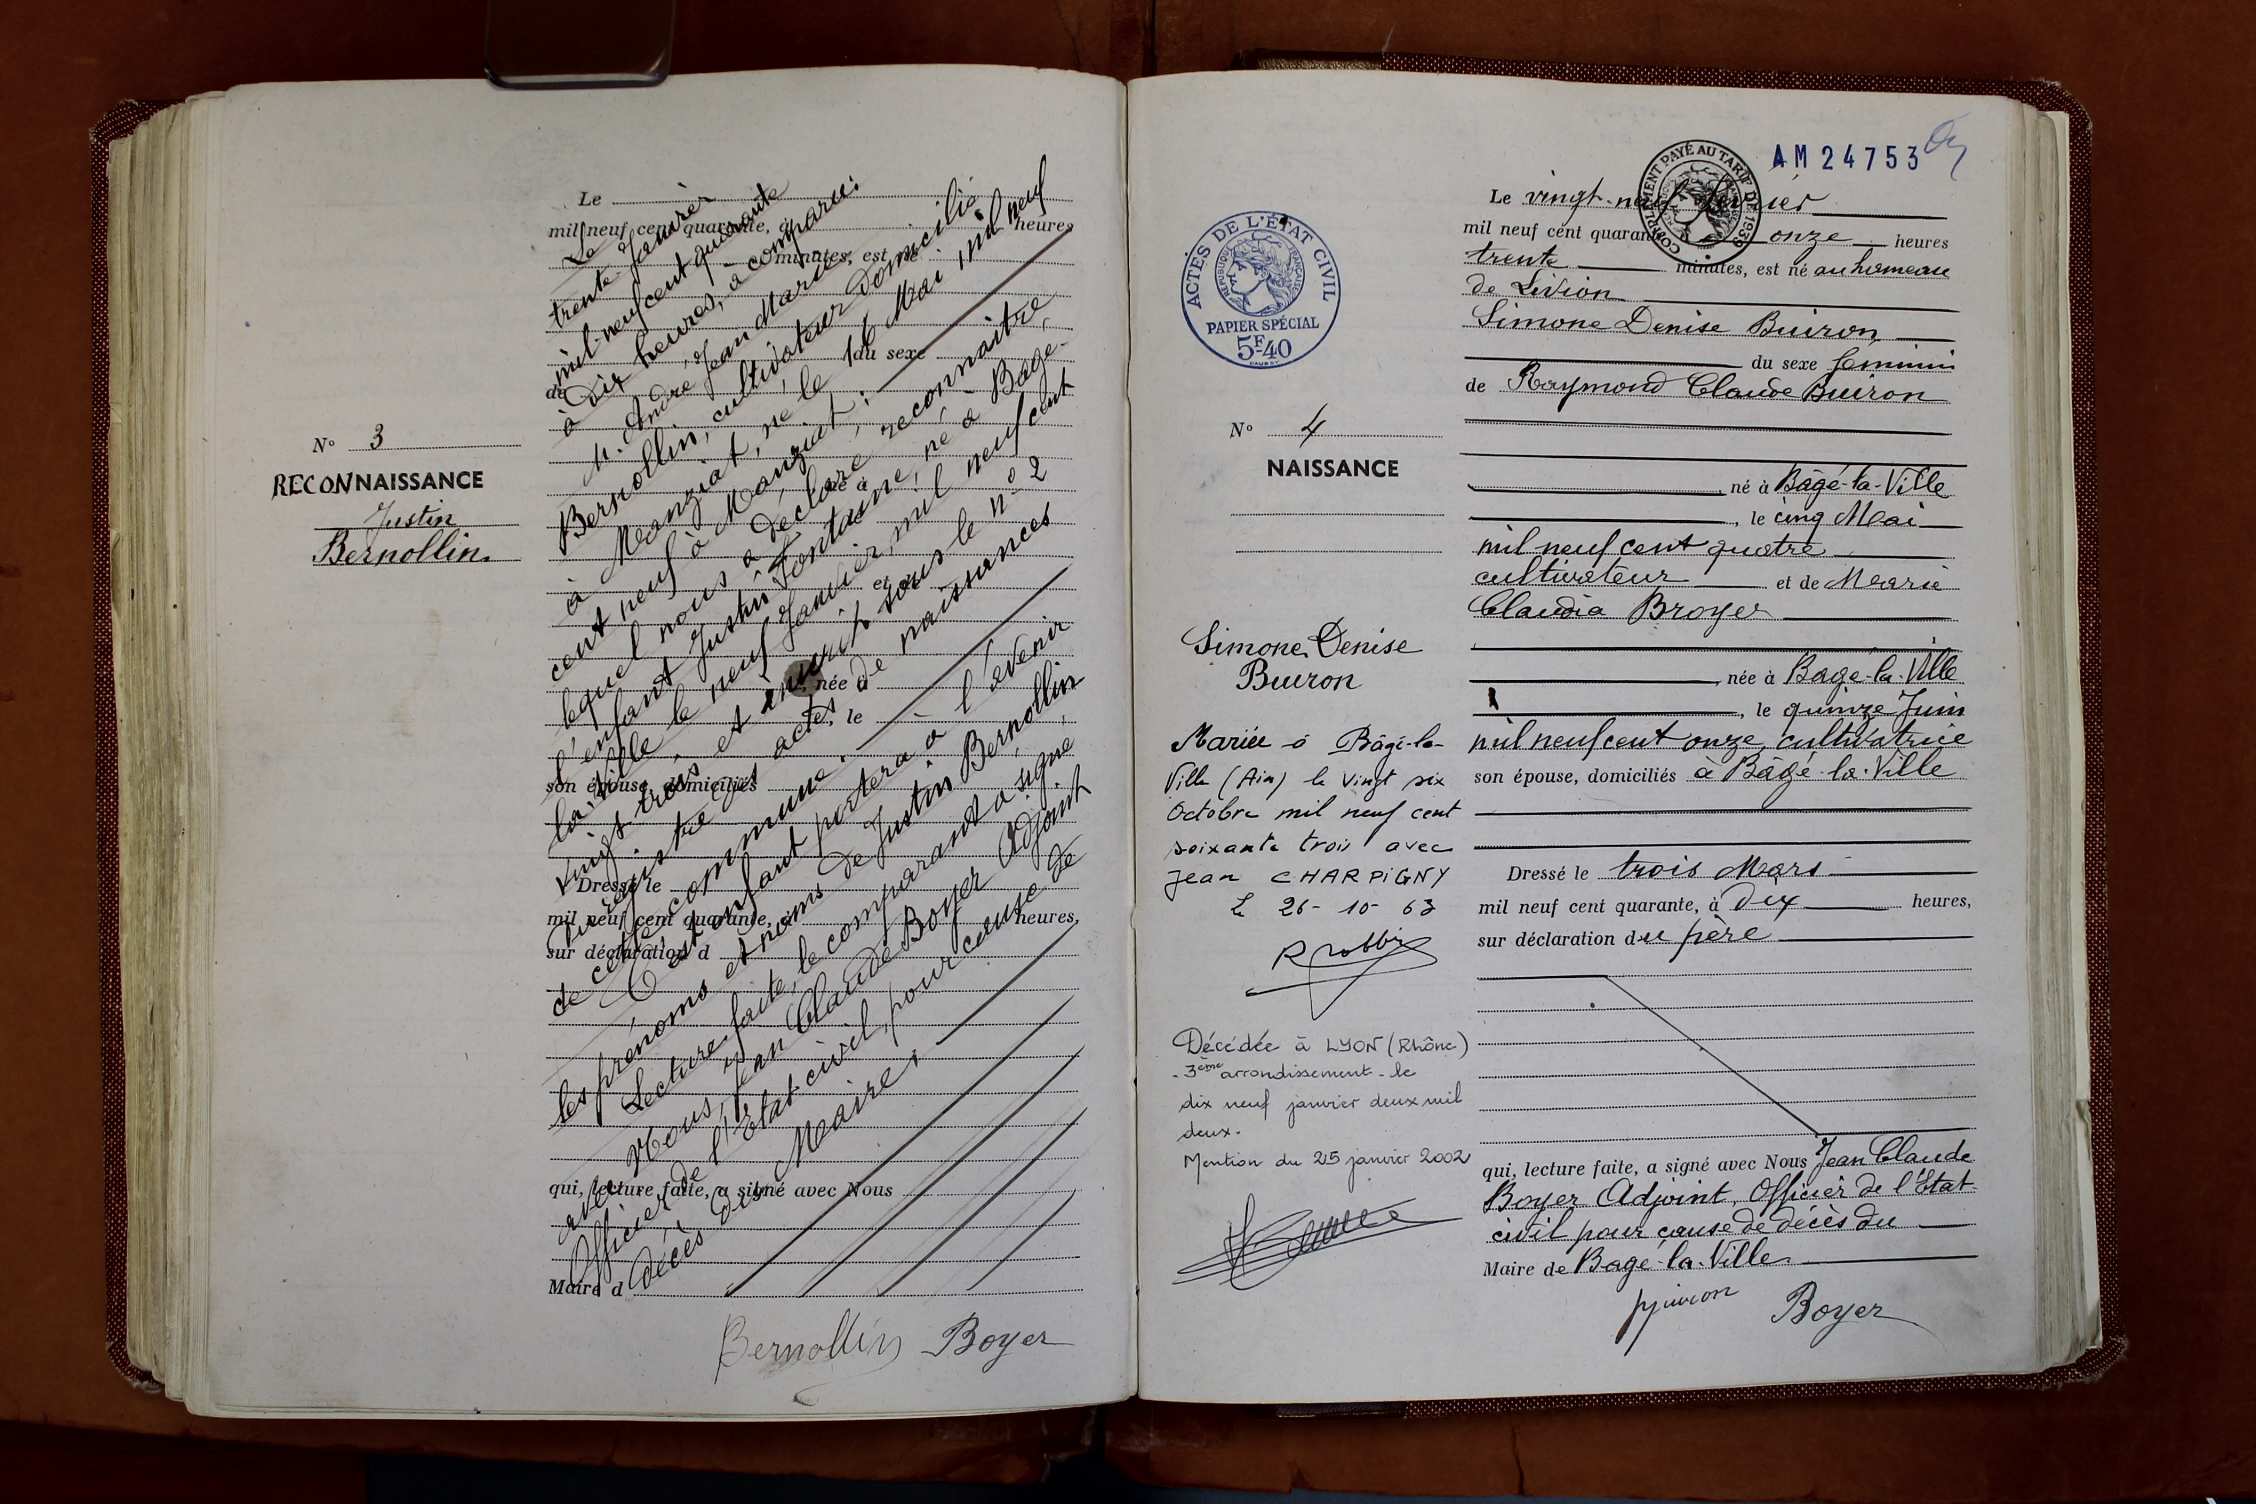 N° 3
RECONNAISSANCE
Justin
Bernollin.
Le
mil neuf cent quarante, à heures
minutes, est né
du sexe
de
né à
et de
, née à
, le
son épouse, domiciliés
Dressé le
mil neuf cent quarante, à heures,
sur déclaration d
qui, lecture faite, a signé avec Nous
Maire d
Le
trente Janvier
mil neuf cent quarante
à Dix heures, a comparu:
M. André Jean Marie
Bernollin, cultivateur domicilié
à Manziat, né le 16 Mai mil neuf
cent neuf à Manziat;
lequel nous a déclaré reconnaitre,
l'enfant Justin Fontaine, né à Bâgé-
la-Ville le neuf Janvier, mil neuf cent
vingt-trois, et inscrit sous le n° 2
du registre des actes de naissances
de cette commune.
Cet enfant portera à l'avenir
les prénoms et noms de Justin Bernollin
Lecture faite, le comparant a signé,
avec Nous, Jean Claude Boyer Adjoint
Officier de l'Etat-civil, pour cause de
décès du Maire;
Bernollin Boyer
AM 24753
COMPLEMENT PAYÉ AU TARIF DE 1939
ACTES DE L'ÉTAT CIVIL
RÉPUBLIQUE FRANÇAISE
PAPIER SPÉCIAL
5F40
N° 4
NAISSANCE
Simone Denise
Buiron
Mariée à Bâgé-la-
Ville (Ain) le vingt six
Octobre mil neuf cent
soixante trois avec
Jean CHARPIGNY
Le 26-10-63
Décédée à LYON (Rhône)
- 3ème arrondissement - le
dix neuf janvier deux mil
deux.
Mention du 25 janvier 2002
Le vingt-neuf Février
mil neuf cent quarante, à onze heures
trente minutes, est né au hameau
de Livion
Simone Denise Buiron,
du sexe féminin
de Raymond Claude Buiron
, né à Bâgé-la-Ville
, le cinq Mai
mil neuf cent quatre
cultivateur et de Marie
Claudia Broyer
, née à Bâgé-la-Ville
, le quinze Juin
mil neuf cent onze, cultivatrice
son épouse, domiciliés à Bâgé-la-Ville
Dressé le trois Mars
mil neuf cent quarante, à Dix heures,
sur déclaration du père
qui, lecture faite, a signé avec Nous Jean Claude
Boyer Adjoint, Officier de l'Etat-
civil pour cause de décès du
Maire de Bâgé-la-Ville.
Boyer